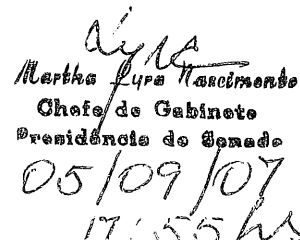 Martha Lyra Nascimento
Chefe de Gabinete
Presidência do Senado
05/09/07
17:55 hs